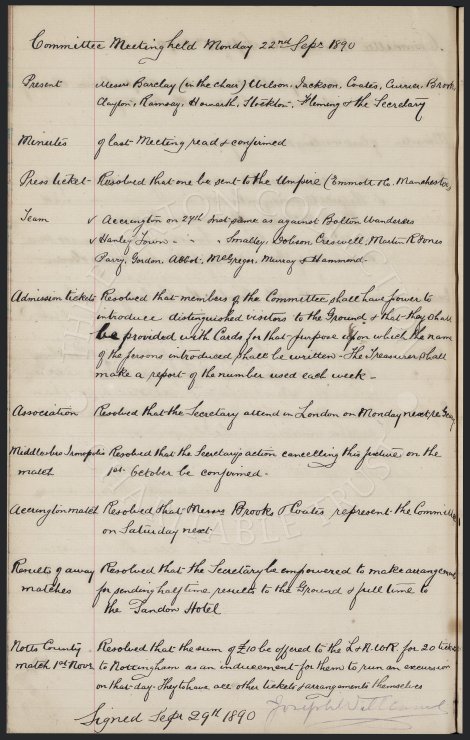 Committee Meeting held Monday 22nd Sepr 1890
Present Messrs Barclay (in the chair) Wilson, Jackson, Coates, Currier, Brooks,
Clayton, Ramsay, Howarth, Stockton, Fleming & the Secretary
Minutes of last Meeting read & confirmed
Press ticket Resolved that one be sent to the Umpire (Emmott & Co, Manchester)
Team ✓ Accrington on 27th Inst same as against Bolton Wanderers
✓ Hanley Town - - - Smalley, Dobson, Creswell, Martin, R Jones
Parry, Gordon, Abbot, McGregor, Murray & Hammond.
Admission tickets Resolved that members of the Committee shall have power to
introduce distinguished visitors to the Ground & that they shall
be provided with Cards for that purpose upon which the name
of the persons introduced shall be written - The Treasurer shall
make a report of the number used each week -
Association Resolved that the Secretary attend in London on Monday next re
Middlesbro Ironopolis Resolved that the Secretary's action cancelling this fixture on the
match 1st October be confirmed -
Accrington match Resolved that Messrs Brooks & Coates represent the Committee
on Saturday next
Results of away Resolved that the Secretary be empowered to make arrangements
matches for sending half time results to the Ground & full time to
the Sandon Hotel.
Notts County Resolved that the sum of £10 be offered to the L & N.W.R. for 20 tickets
match 1st Novr to Nottingham as an inducement for them to run an excursion
on that day - They to have all other tickets & arrangements themselves
Signed Sepr 29th 1890
THE EVERTON COLLECTION
CHARITABLE TRUST